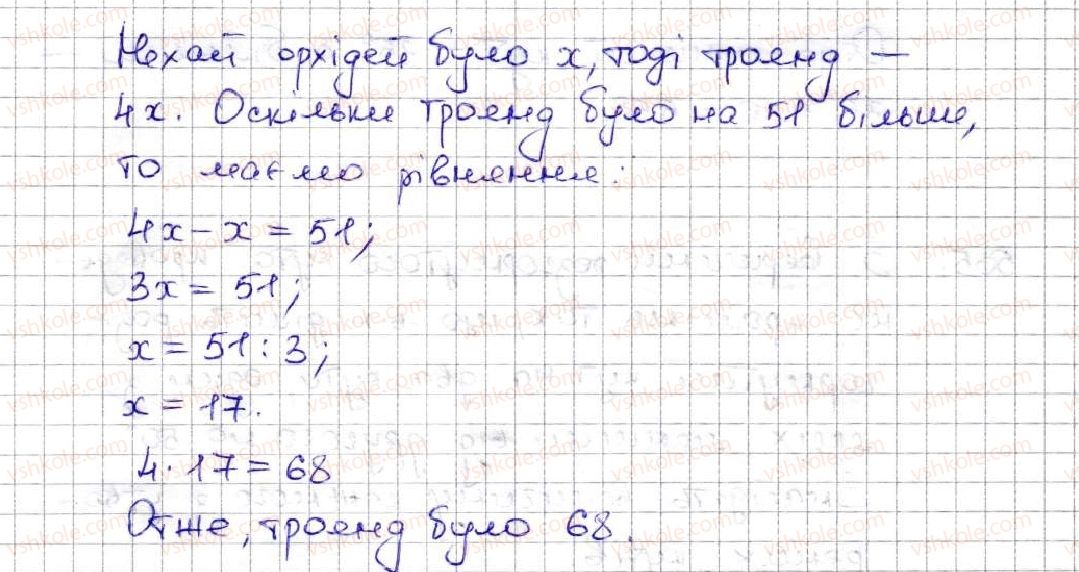 Нехай орхідей було x, тоді троянд —
4x. Оскільки троянд було на 51 більше,
то маємо рівняння:
4x - x = 51;
3x = 51;
x = 51 : 3;
x = 17.
4 · 17 = 68
Отже, троянд було 68.